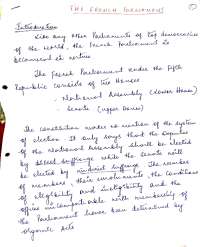 THE FRENCH PARLIAMENT
Introduction
Like any other Parliaments of top democracies
of the world, the French Parliament is
bicameral in nature
The French Parliament under the Fifth
Republic consists of two Houses
- National Assembly (Lower House)
- Senate (Upper House)
The constitution makes no mention of the system
of election. It only says that the Deputies
of the National Assembly shall be elected
by direct suffrage while the Senate will
be elected by indirect suffrage. The number
of members, their emoluments, the conditions
of eligibility and ineligibility and the
offices incompatible with membership of
the Parliament have been determined by
organic acts